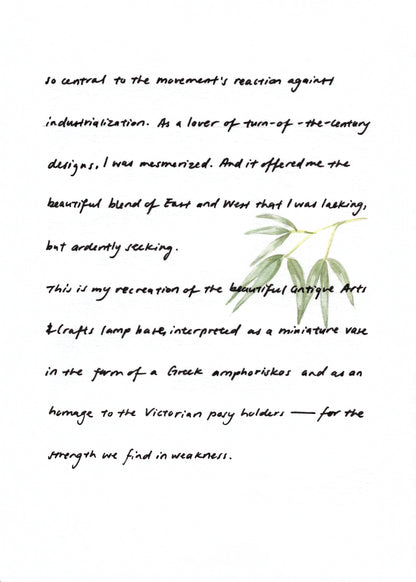 so central to the movement's reaction against
industrialization. As a lover of turn-of-the-century
designs, I was mesmerized. And it offered me the
beautiful blend of East and West that I was lacking,
but ardently seeking.
This is my recreation of the beautiful antique Arts
& Crafts lamp base, interpreted as a miniature vase
in the form of a Greek amphoriskos and as an
homage to the Victorian posy holders — for the
strength we find in weakness.